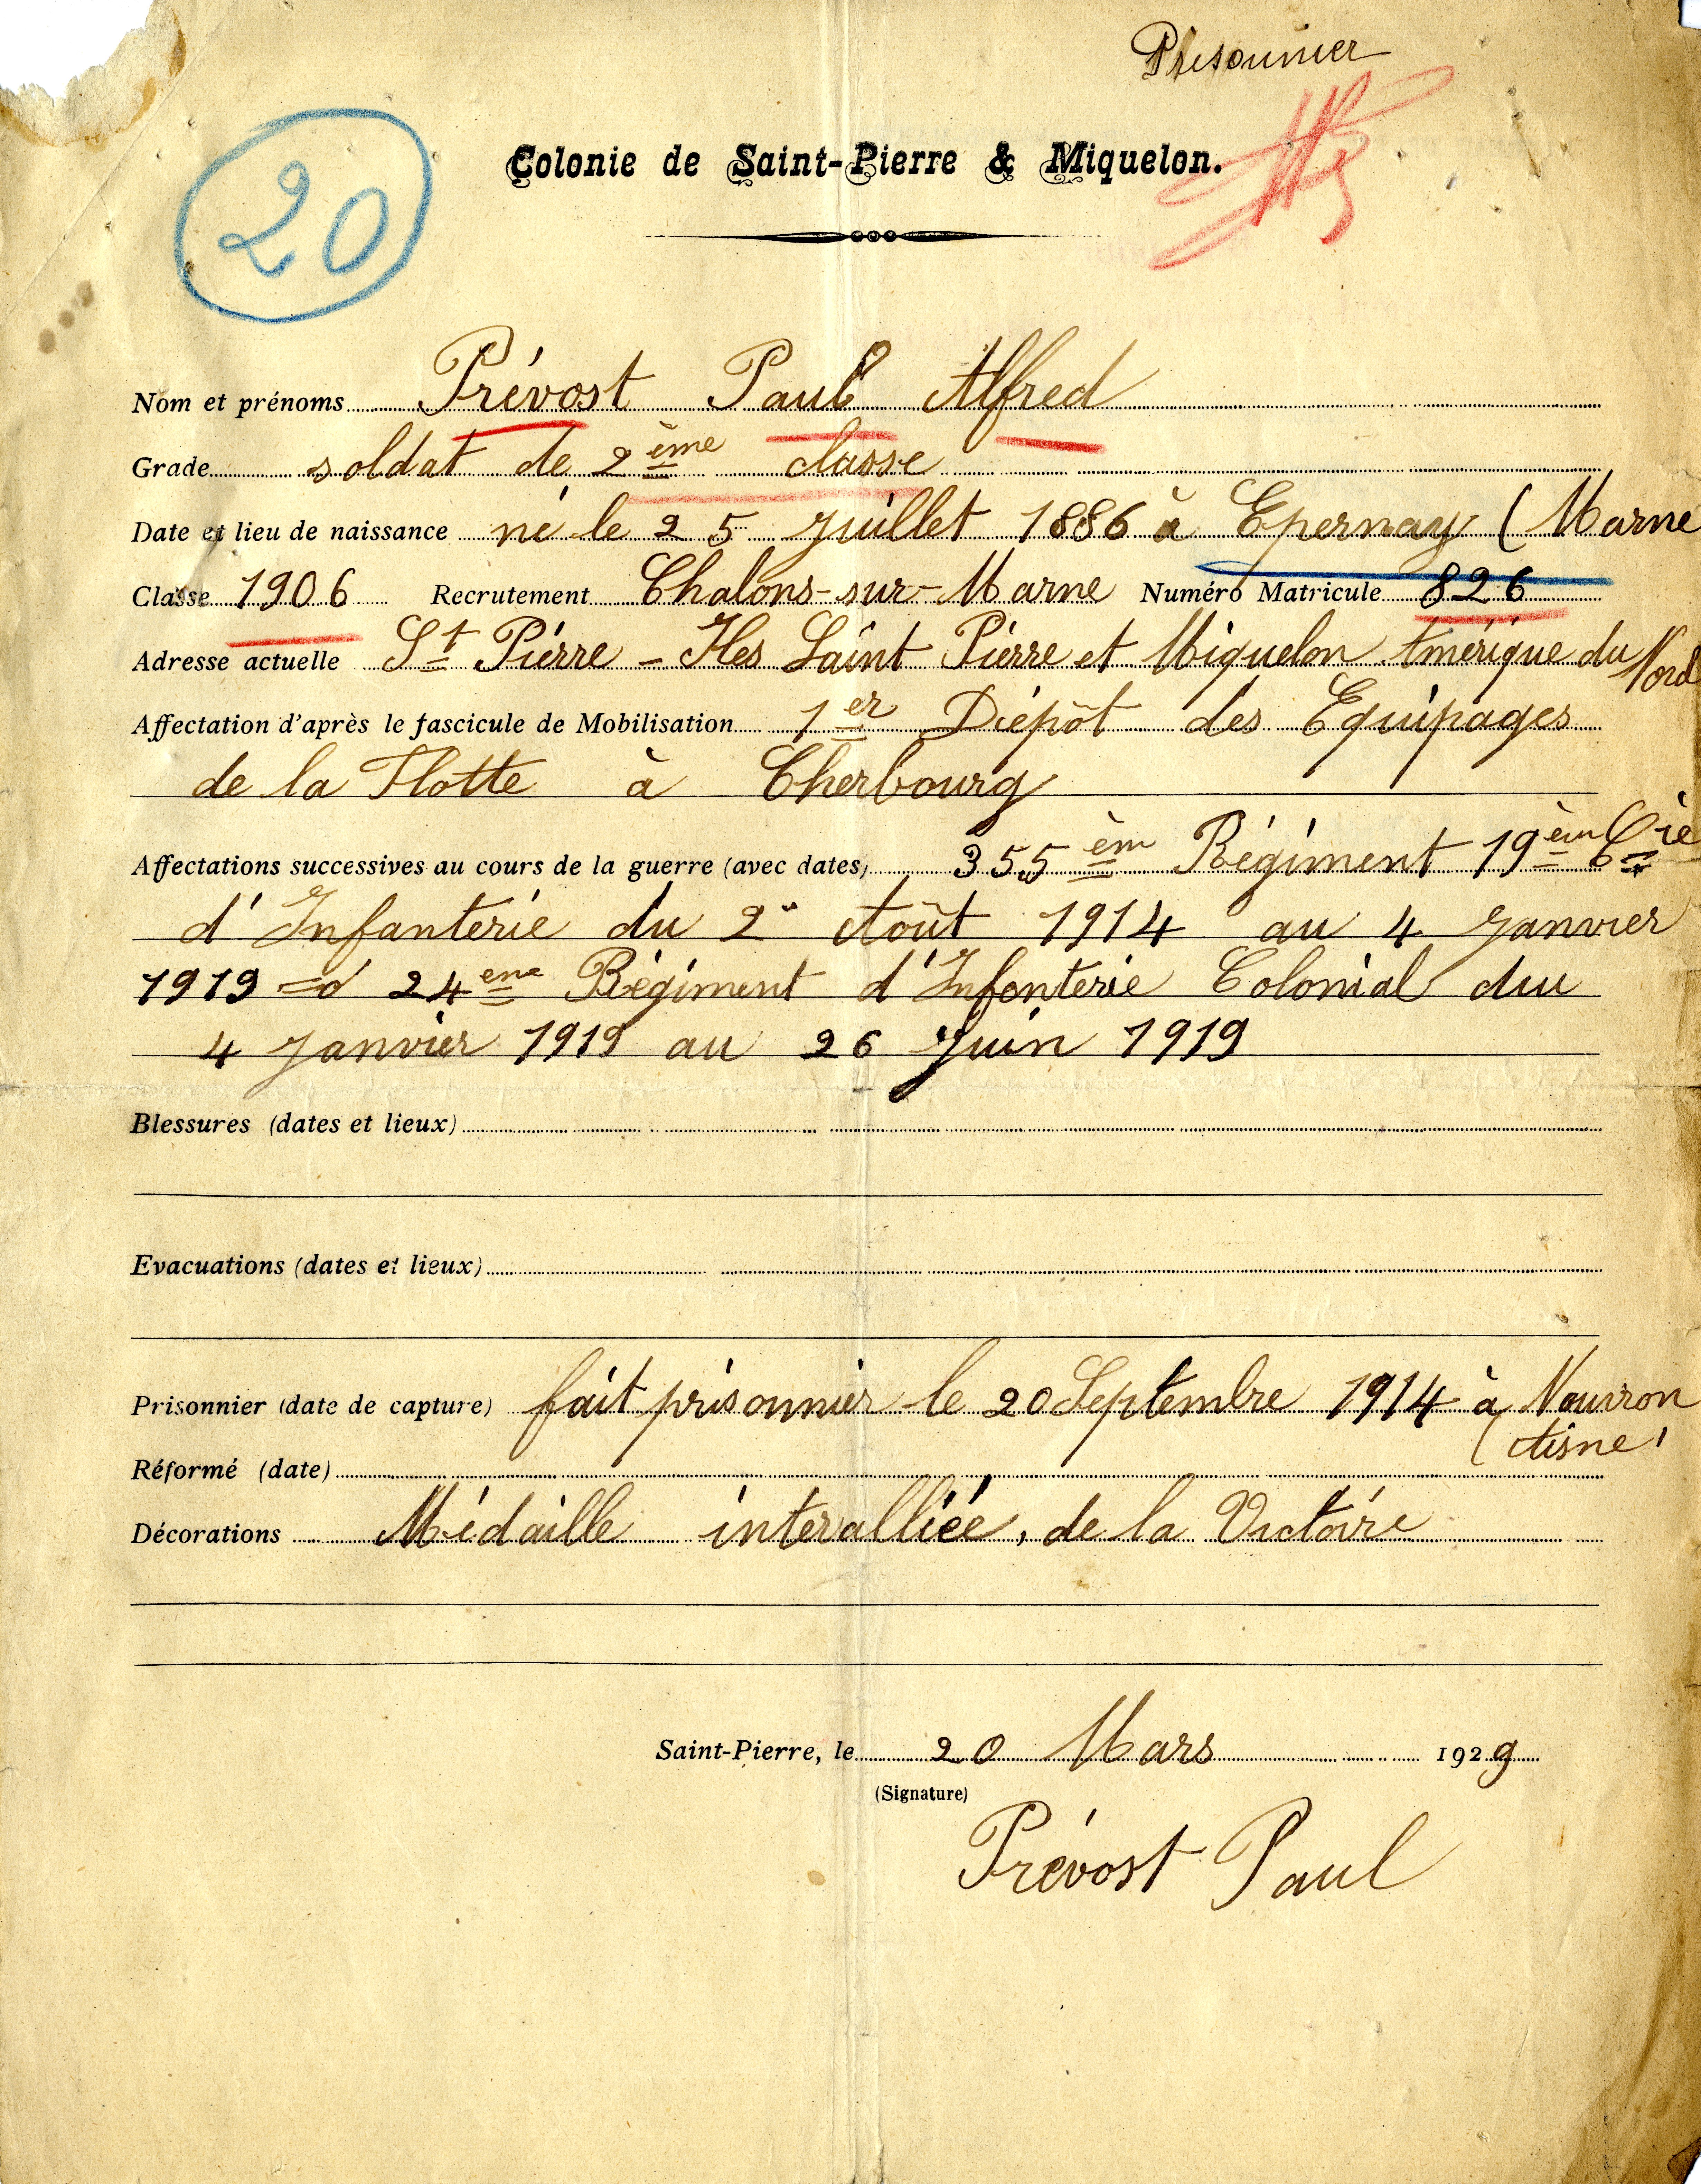 Prisonnier
20
Colonie de Saint-Pierre & Miquelon.
Nom et prénoms Prévost Paul Alfred
Grade soldat de 2ème classe
Date et lieu de naissance né le 25 Juillet 1886 à Epernay (Marne
Classe 1906 Recrutement Chalons-sur-Marne Numéro Matricule 826
Adresse actuelle St Pierre - Iles Saint Pierre et Miquelon Amérique du Nord
Affectation d'après le fascicule de Mobilisation 1er Dépôt des Equipages
de la Flotte à Cherbourg
Affectations successives au cours de la guerre (avec dates) 355èm Régiment 19èm Cie
d'Infanterie du 2 Août 1914 au 4 Janvier
1919 = 24ene Régiment d'Infanterie Colonial du
4 Janvier 1919 au 26 Juin 1919
Blessures (dates et lieux)
Evacuations (dates et lieux)
Prisonnier (date de capture) fait prisonnier le 20 Septembre 1914 à Nouvron
(Aisne)
Réformé (date)
Décorations Médaille interalliée, de la Victoire
Saint-Pierre, le 20 Mars 1929
(Signature)
Prévost Paul